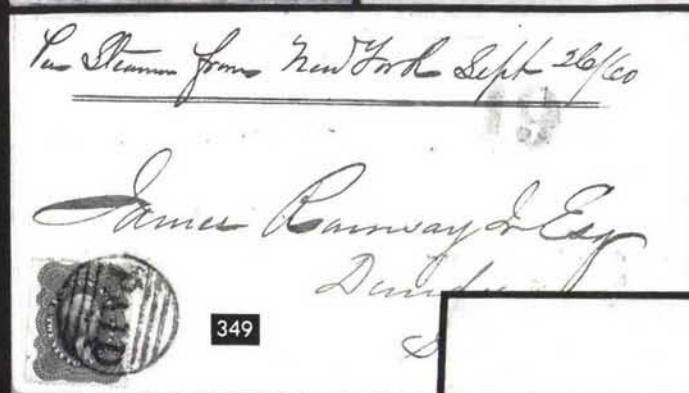 Per Steamer from New York Sept 26/60
19
James Ramsay Jr Esq
PAID
349